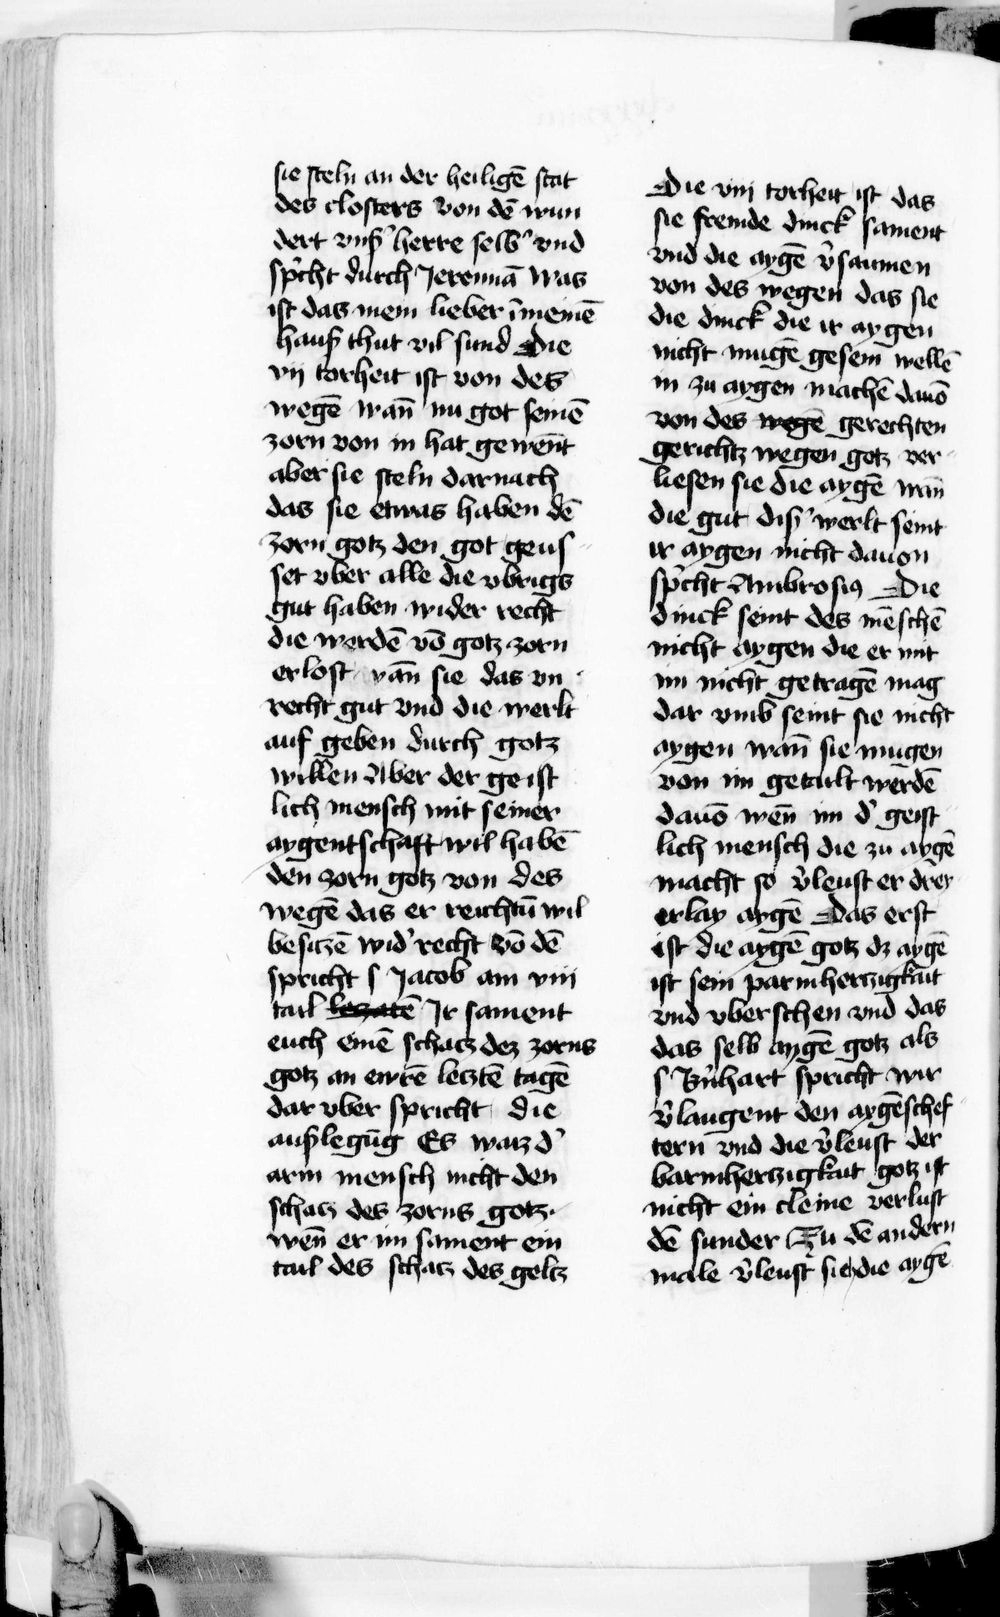 sie steln an der heiligē stat
des closters von dē wun
dert vnß' herre selb' vnd
sp̄cht durch Jeremiā Was
ist das mein lieber ī meinē
hauß thut vil sund Die
vij torheit ist von des
wegē wan̄ nu got seinē
zorn von in hat gewēnt
aber sie steln darnach
das sie etwas haben dē
zorn gotz den got geus
set vber alle die vbrigs
gut haben wider recht
die werdē vō gotz zorn
erlost wan̄ sie das vn
recht gut vnd die werlt
auf geben durch gotz
willen Aber der geist
lich mensch mit seiner
aygentschaft wil habē
den zorn gotz von des
wegē das er reichtū wil
besitzē wid' recht Vō dē
spricht s Jacob am viii
tail Ir sament
euch einē schatz dez zorns
gotz an ewrē letztē tagē
dar vber spricht die
außlegūg Es waiz d'
arm mensch nicht den
schatz des zorns gotz
wen̄ er im sament ein
tail des schatz des geltz
Die viii torheit ist das
sie fremde dinck sament
vnd die aygē v̓saumen
von des wegen das sie
die dinck die ir aygen
nicht mugē gesein wellē
in zu aygen machē dauō
von des wegē gerechten
gerichtz wegen gotz ver
liesen sie die aygē wan̄
die gut diß' werlt seint
ir aygen nicht dauon
sp̄cht Ambrosiꝰ Die
dinck seint des mēschē
nicht aygen die er mit
im nicht getragē mag
dar vmb seint sie nicht
aygen wan̄ sie mugen
von im getailt werdē
dauō wen̄ im d' geist
lich mensch die zu aygē
macht so v̓leust er drey
erlay aygē Das erst
ist die aygē gotz dz aygē
ist sein parmhertzigkait
vnd vbersehen vnd das
das selb aygē gotz als
s B̓nhart spricht wir
v̓laugent den aygēschef
tern vnd die v̓leust der
barmhertzigkait gotz ist
nicht ein cleine verlust
dē sunder Zu dē andern
male v̓leust sie die aygē